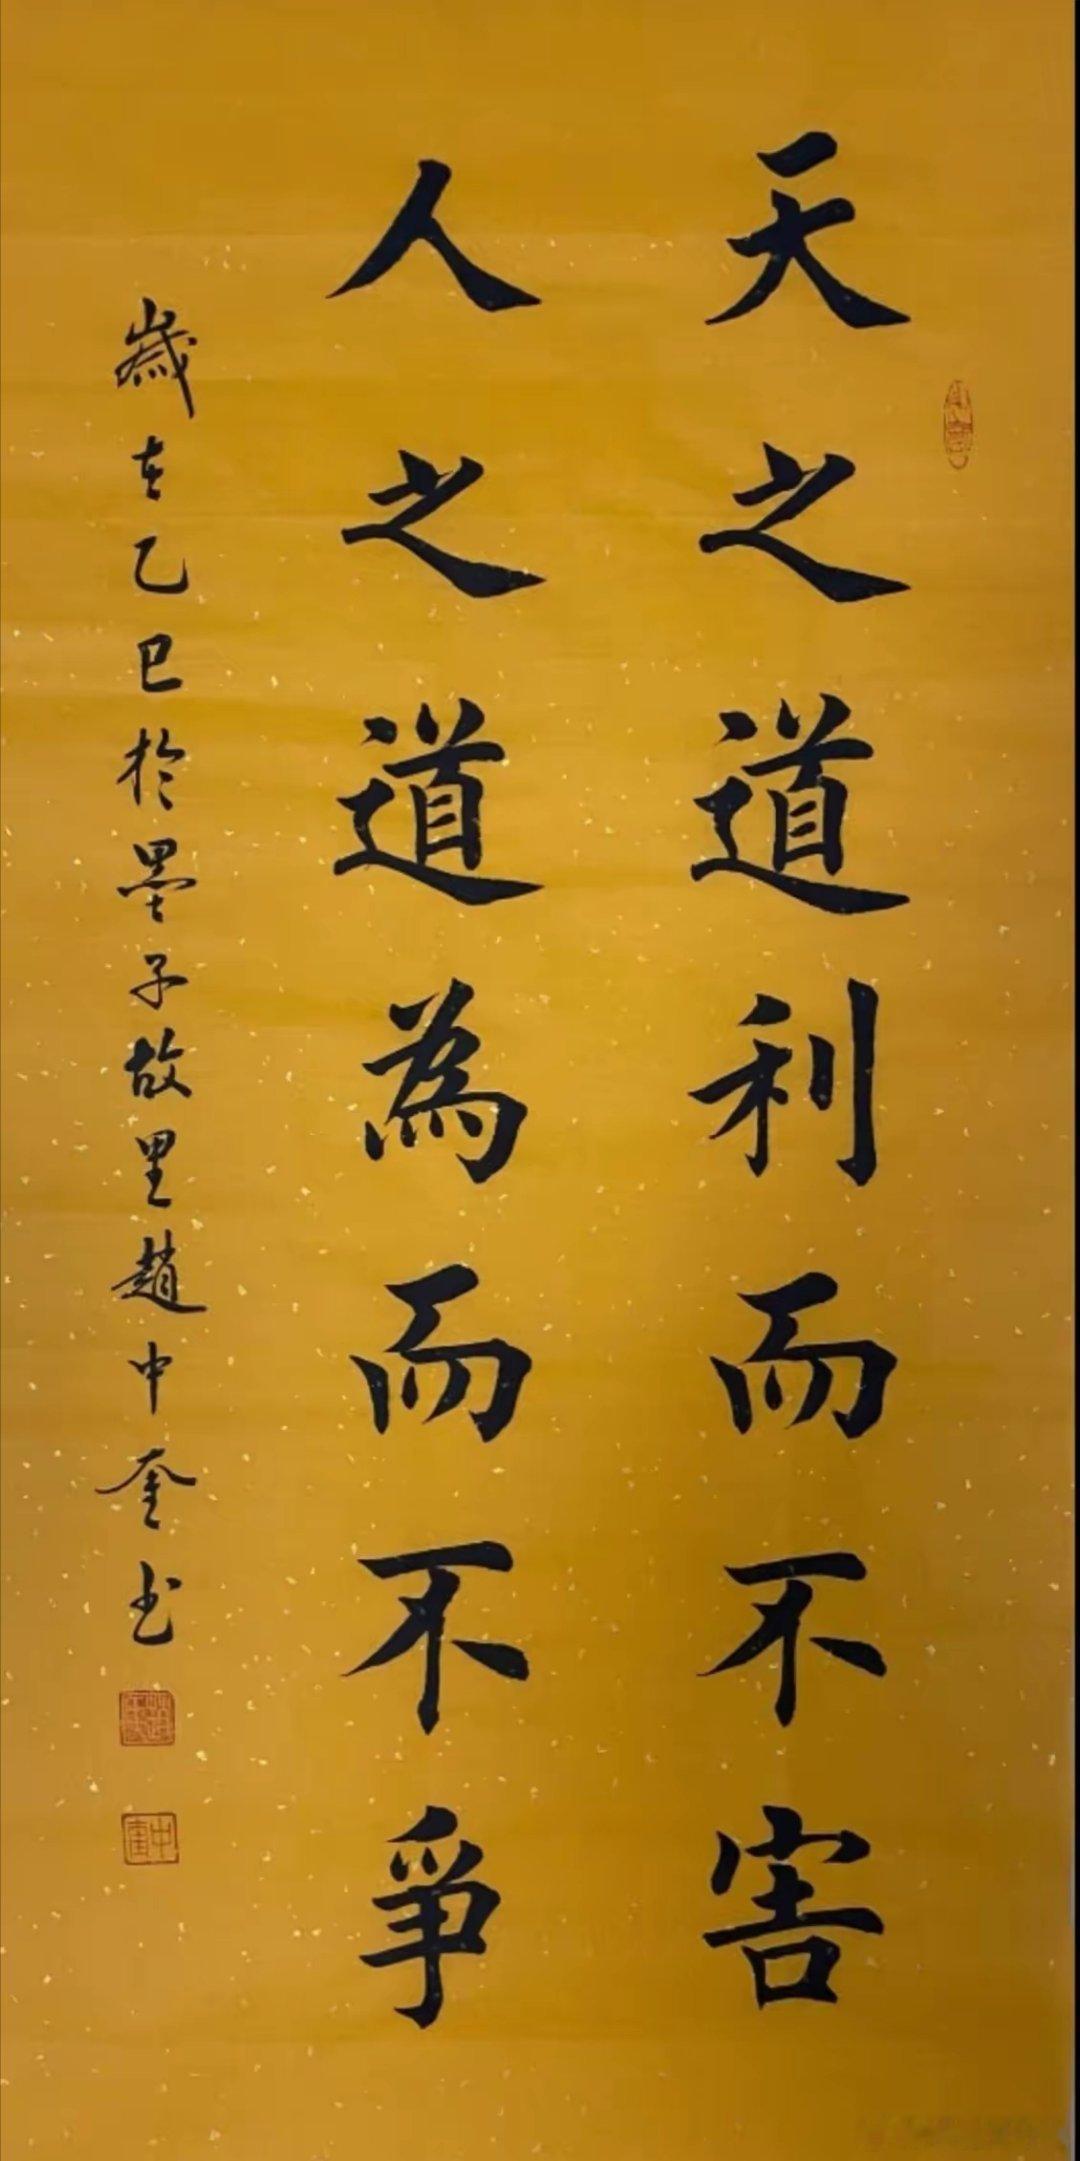 天之道利而不害
人之道為而不爭
歲在乙巳於墨子故里趙中奎书
中奎